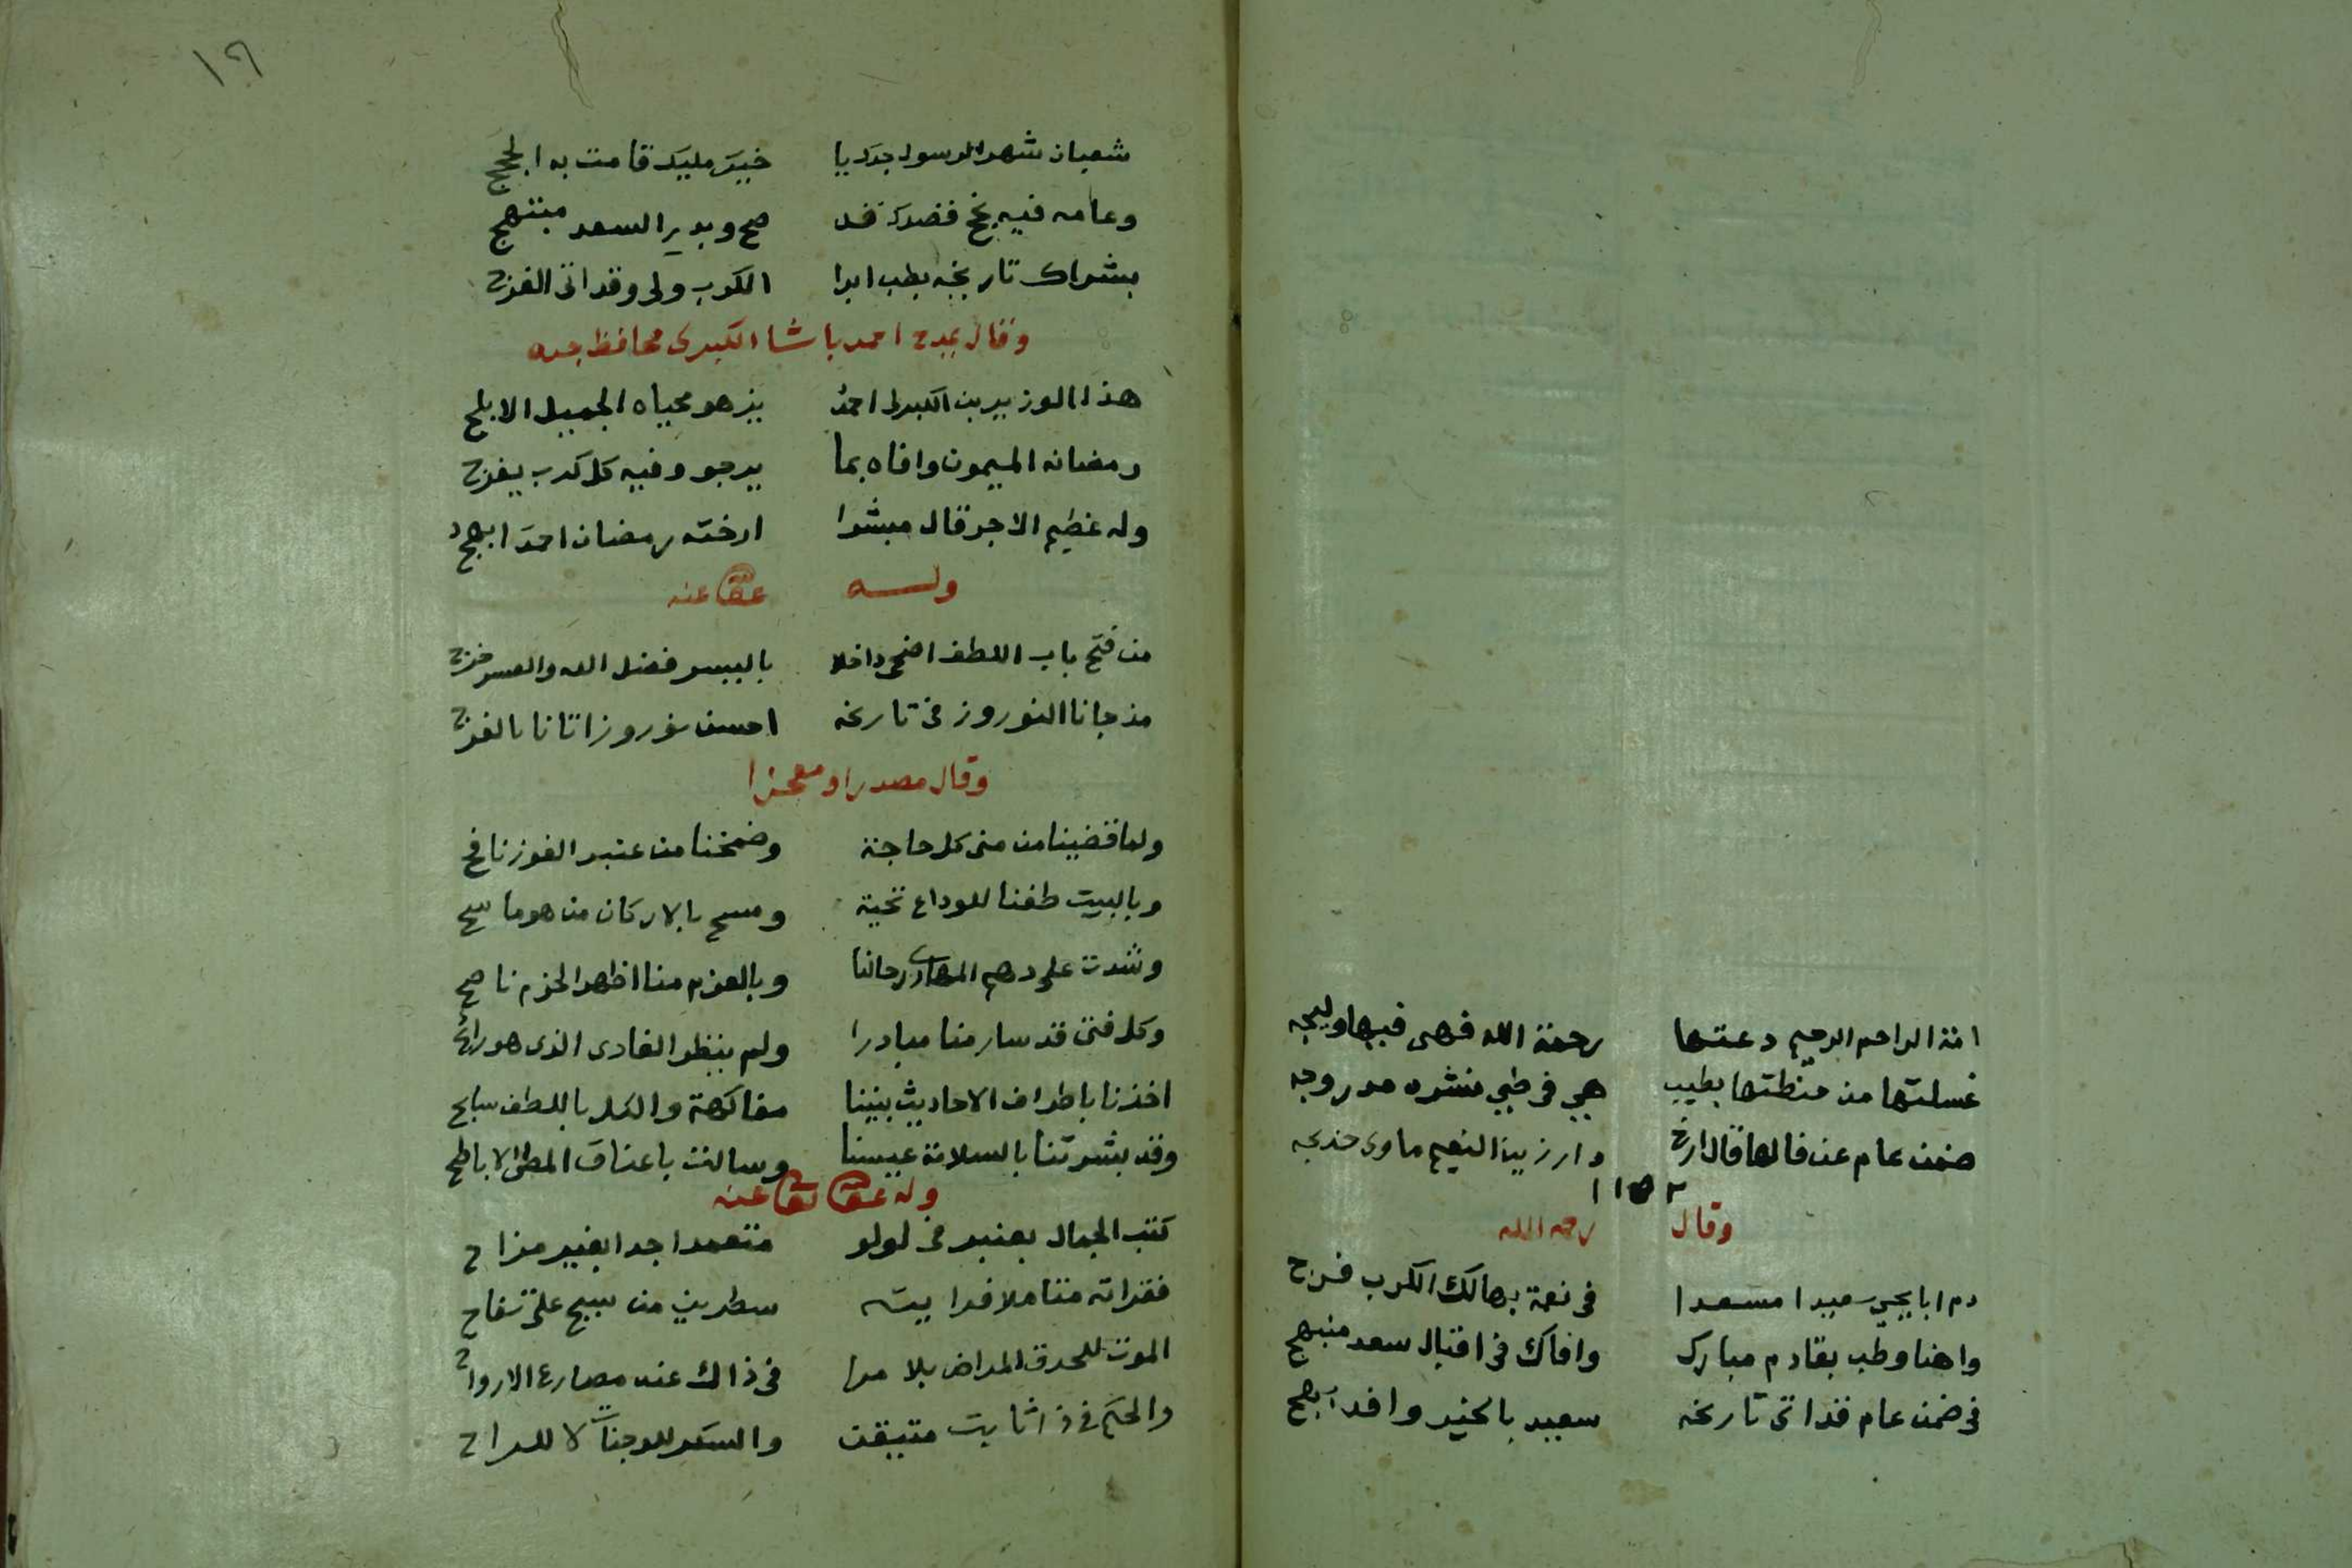 امة الراحم الرحيم دعتها رحمة الله فهى فيها وليجه
غسلتها من منظتها بطيب هي فى طي نشره مدروجه
ضمن عام عن فالها قال ارخ دار زين النعيم ماوى خديجه
١١٥٢
وقال رحمه الله
دم ابا يحيى سعيدا مسعدا فى نعمة بها لك الكرب فرج
واهنا وطب بقادم مبارك وافاك فى اقبال سعد منبهج
فى ضمن عام قد اتى تاريخه سعيد بالخير وافد ابهج
١٦
شعبان شهر الرسول جدك يا خير مليك قامت به الحجج
وعامه فيه بخ فضدك قد صح وبدير السعد مبتهج
بشراك تاريخه بطب ابدا الكرب ولى وقد اتى الفرج
وقال يمدح احمد باشا الكبرلى محافظ جده
هذا الوزير بن الكبرلى احمد يزهو محياه الجميل الابلج
رمضانه الميمون وافاه بما يرجو وفيه كل كرب يفرج
وله عظيم الاجر قال مبشرا ارخته رمضان احمد ابهج
وله عفا عنه
من فتح باب اللطف اضحى داخلا باليسر فضل الله والعسر خرج
مذ جانا النوروز فى تاريخه احسن نوروز اتانا بالفرج
وقال مصدرا ومعجزا
ولما قضينا من منى كل حاجة وضمخنا من عنبر الفوز نافح
وبالبيت طفنا للوداع تحية ومسح بالاركان من هو ماسح
وشدت على دهم المهارى رحالنا وبالعزم منا اظهر الحزم ناصح
وكل فتى قد سار منا مبادرا ولم ينظر الغادى الذى هو رائح
اخذنا باطراف الاحاديث بيننا مفاكهة والكل باللطف سابح
وقد بشرتنا بالسلامة عيسنا وسالت باعناق المطى الاباطح
وله عفا الله عنه
كتب الجمال بعنبر فى لولو متعمدا جدا بغير مزاح
فقراته متاملا فرايته سطرين من سبج على تفاح
الموت للحدق المراض بلا مرا فى ذاك عند مصارع الارواح
والحكم فى ذا ثابت متيقن والسكر للوجنات لا للراح